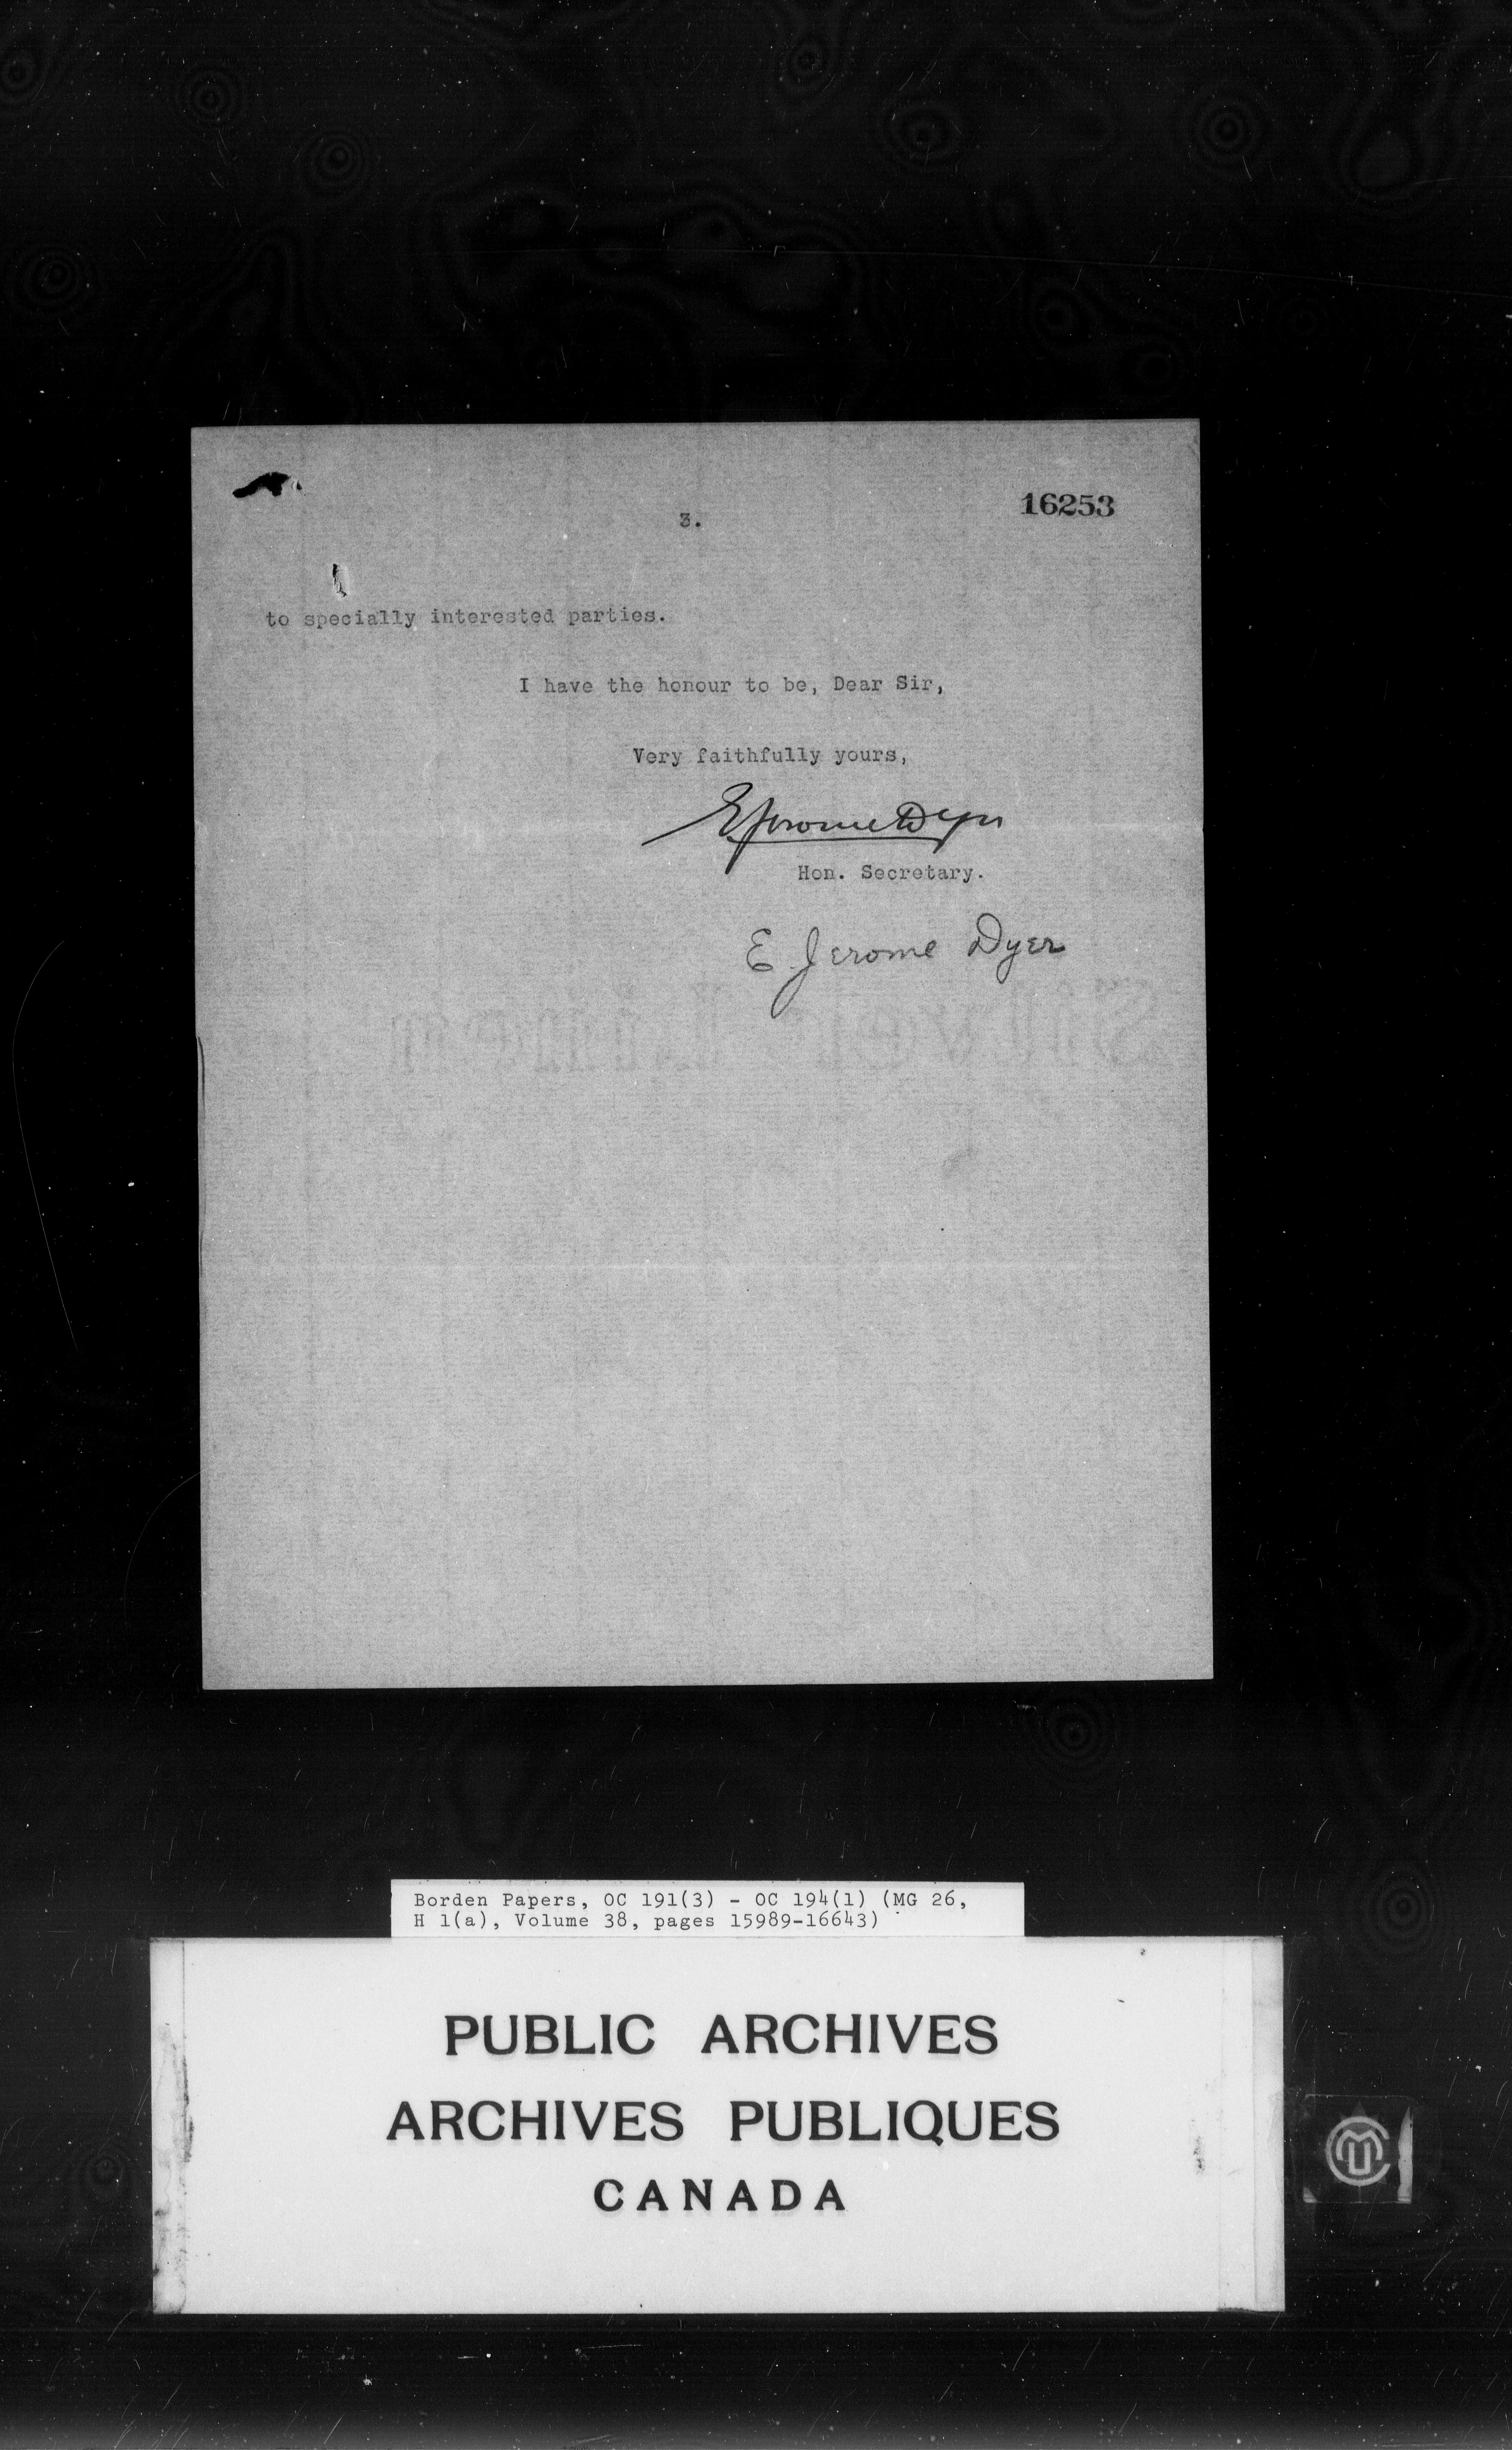 16253
3.
to specially interested parties.
I have the honour to be, Dear Sir,
Very faithfully yours,
E Jerome Dyer
Hon. Secretary.
E Jerome Dyer
Silver Linen
Borden Papers, OC 191(3) - OC 194(1) (MG 26,
H 1(a), Volume 38, pages 15989-16643)
PUBLIC ARCHIVES
ARCHIVES PUBLIQUES
CANADA